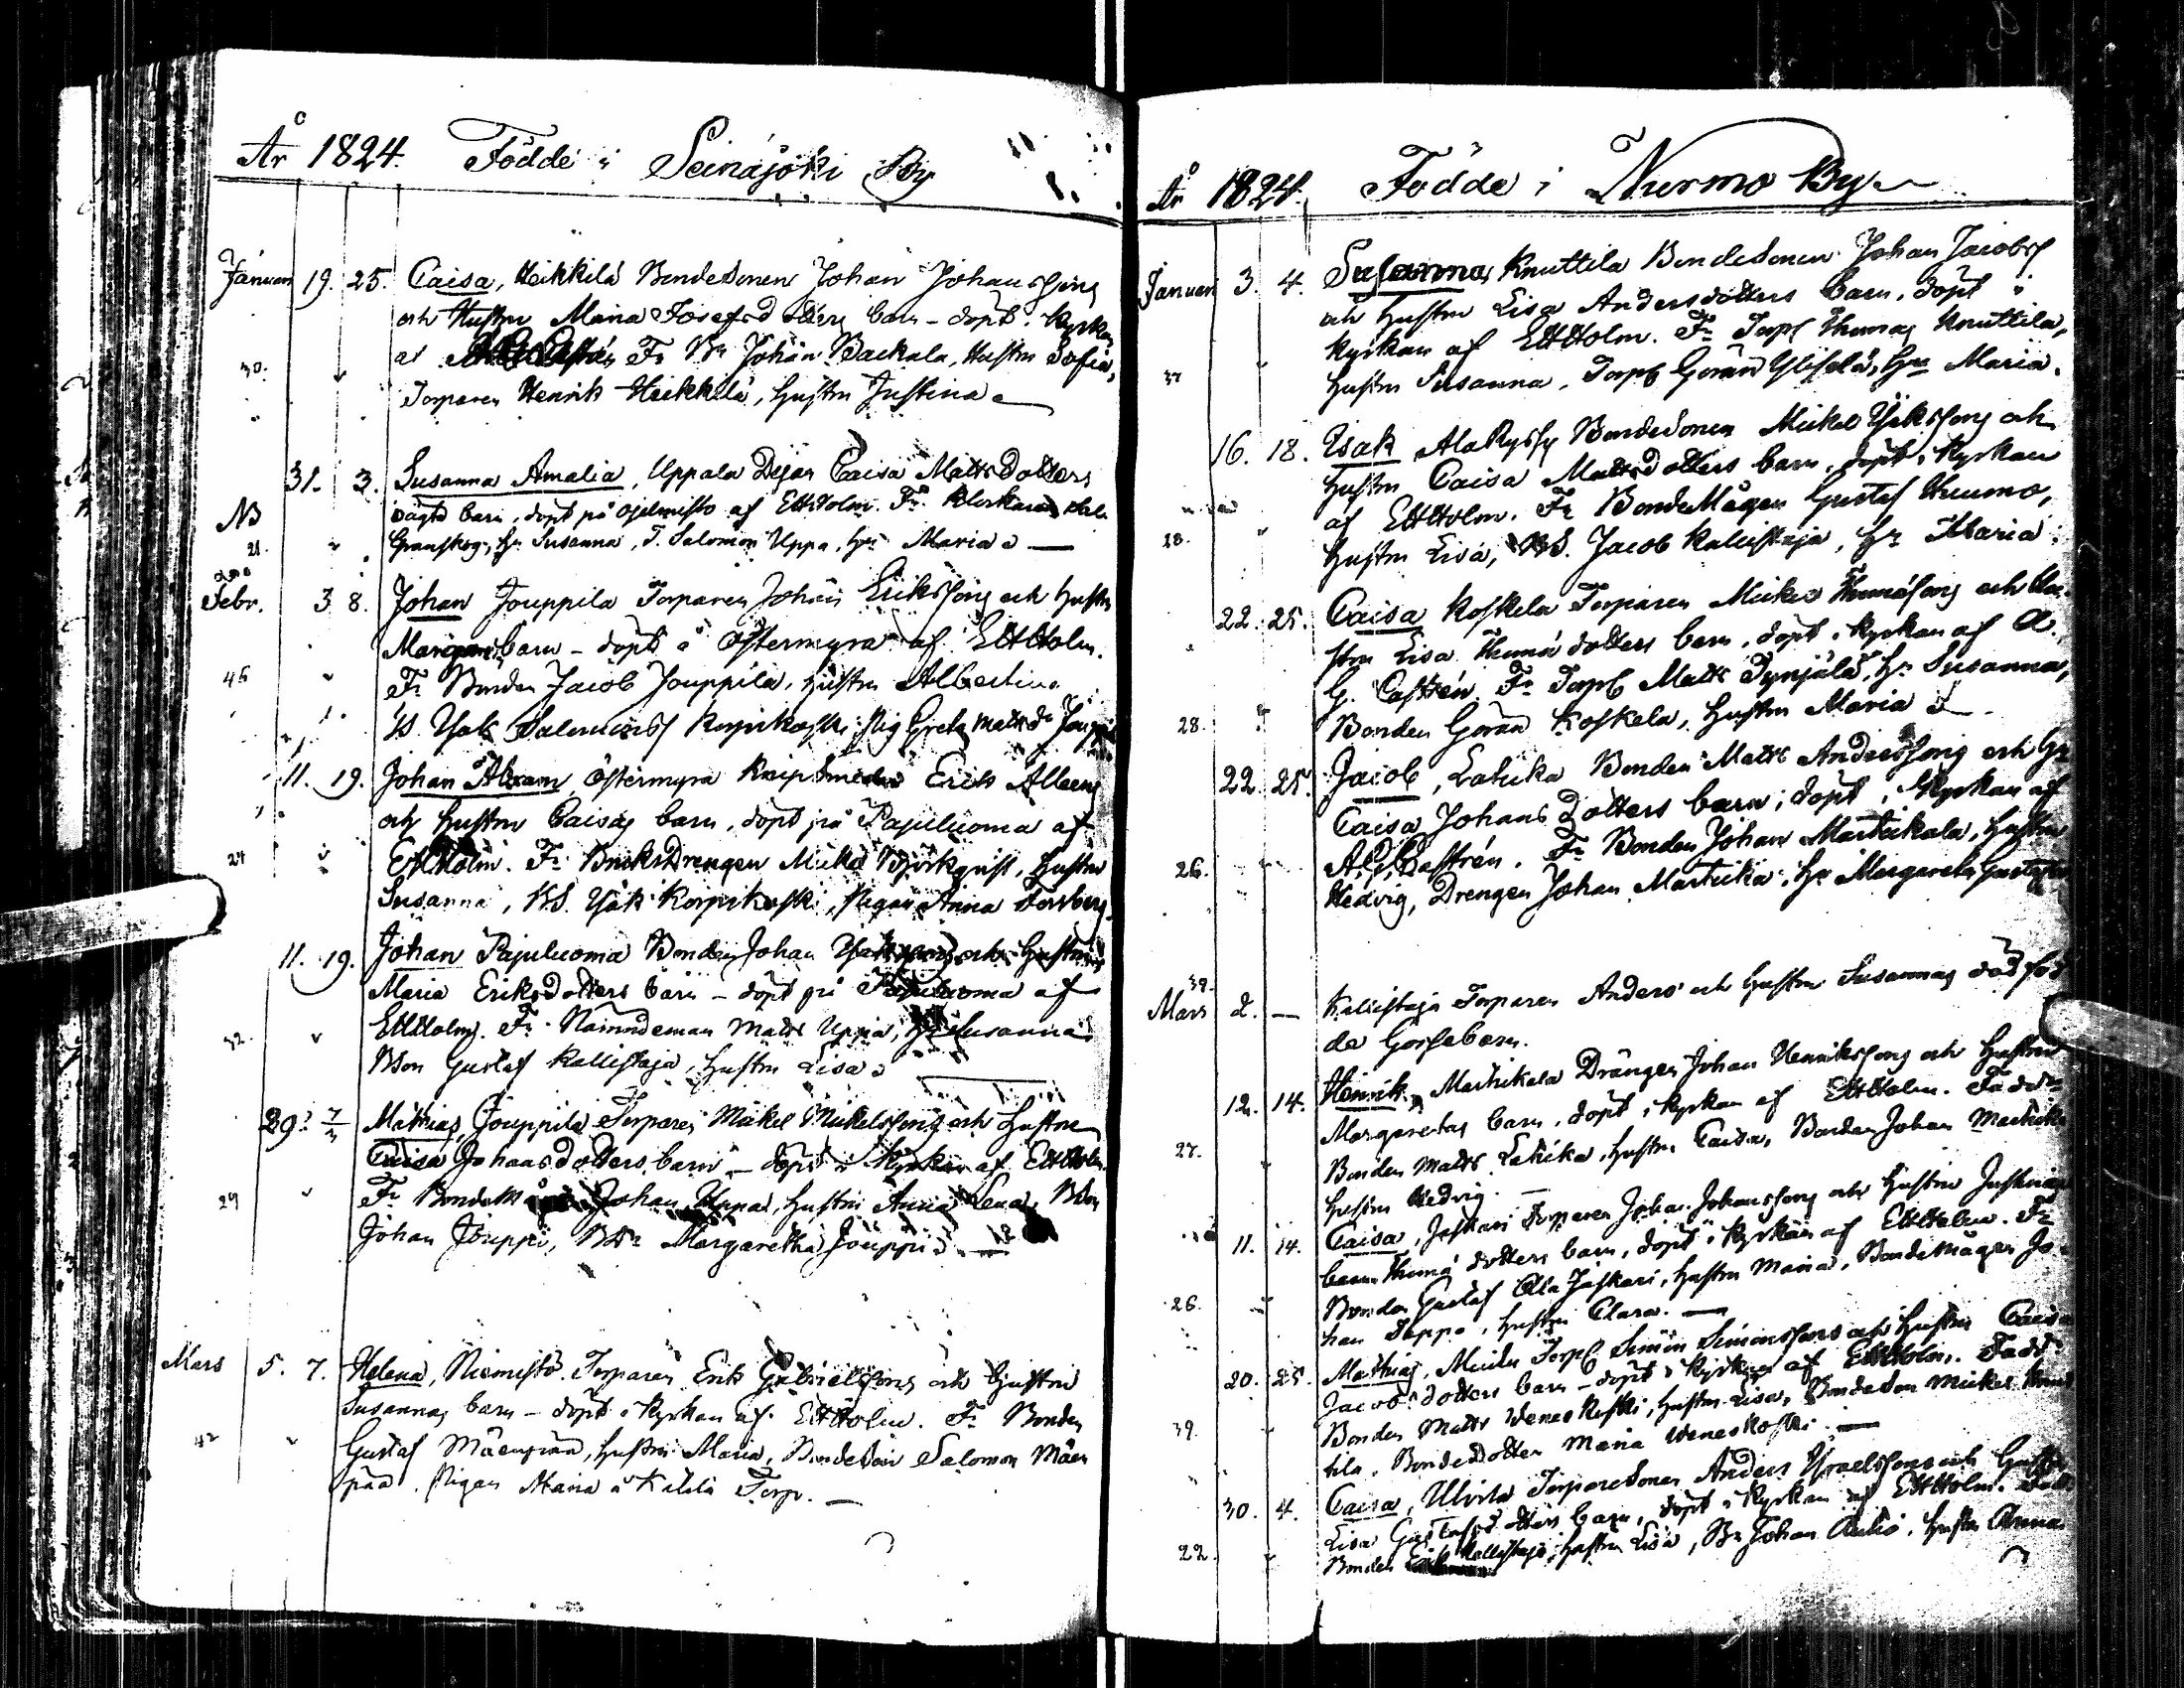 År 1824. Födde i Seinäjoki By
Januari 19. 25. Caisa, Heikkilä Bondesonen Johan Johanssons
och Hustru Maria Josefsdotters barn - döpt i kyrkan
30. af Fr. Br Johan Backala, Hustru Sofia,
Torparen Henrik Heikkilä, Hustru Justina
31. 3. Susanna Amalia, Uppala Dejan Caisa Mattsdotters
NB oägta barn, döpt på af EHHolm. Fr. Klockaren
21. Granskog, Hr Susanna, T. Salomon Uppa, Hr Maria
Febr. 3 8. Johan Jouppila Torparen Johan Erikssons och Hustru
barn - döpt å Östermyra af EHHolm.
45 Fr Bonden Jacob Jouppila, hustru Albertina
Isak Korpikoski, Pig Greta Mattsdr
11. 19. Johan Abram, Östermyra Knipsmeden Erik
och hustru Caisas barn, döpt på Pajuluoma af
24 EHHolm. Fr. BruksDrengen Mickel Björkqvist, Hustru
Susanna, BS. Isak Korpikoski, Pigan Anna Forsberg
11. 19. Johan Pajuluoma Bonden Johan och Hustrus
Maria Eriksdotters barn - döpt på Pajuluoma af
32. EHHolm. Fr. Nämndeman Matts Uppa, Hr Susanna
BSon Gustaf Kallistaja, Hustru Lisa
29. 7/3 Mathias, Jouppila Torparen Mickel Mickelssons och Hustru
Caisa Johansdotters barn - döpt i kyrkan af EHHolm
29 Fr Johan Uppa, Hustru Anna Lena, BSon
Johan Jouppi, BDr Margaretha Jouppi
Mars 5. 7. Helena, Niemistö Torparen Erik Gabrielssons och Hustru
Susannas barn - döpt i kyrkan af EHHolm. Fr Bonden
42 Gustaf Mäenpää, Hustru Maria, BondeSon Salomon Mäen
pää, Pigan Maria å Torp.
År 1824. Födde i Nurmo By
Januari 3. 4. Susanna, Knuttila Bondesonen Johan Jacobss
och hustru Lisa Andersdotters barn, döpt i
kyrkan af EHHolm. Fr Torp Thomas Knuttila,
37 hustru Susanna, Torp Göran Ylisela, Hru Maria.
16. 18. Isak AlaRyssy Bondesonen Mickel Isakssons och
hustru Caisa Mattsdotters barn, döpt i kyrkan
af EHHolm. Fr BondeMågen Gustaf Huumo,
28. hustru Lisa, BS. Jacob Kallistaja, Hr Maria
22. 25. Caisa Koskela Torparen Mickel Thomassons och Hu-
stru Lisa Thomædotters barn, döpt i kyrkan af A.
G. Castrén. Fr Torp Matts Tynjälä, Hr Susanna,
28. Bonden Göran Koskela, Hustru Maria
22. 25. Jacob, Latuka Bonden Matts Anderssons och Hr
Caisa Johansdotters barn, döpt i kyrkan af
26. A.G. Castrén. Fr Bonden Johan Martikala, hustru
Hedvig, Drengen Johan Martikala, Hr Margareta
39. Mars 2. — Kallistaja Torparen Anders och hustru Susannas död föd
da Gossebarn.
12. 14. Henrik, Martikala Drängen Johan Henrikssons och Hustru
Margaretas barn, döpt i kyrkan af EHHolm. Faddr
27. Bonden Matts Latuka, hustru Caisa, Bonden Johan
hustru Hedvig.
11. 14. Caisa, Jaskari Torparen Johan Johanssons och hustru Justina
Thomædotters barn, döpt i kyrkan af EHHolm. Fr
26. Bonden Gustaf Ala Jaskari, hustru Maria, BondeMågen Jo-
han hustru Clara.
20. 25. Mathias, Torp Simon Simonssons och hustru Caisa
Jacobsdotters barn - döpt i kyrkan af EHHolm. Faddr
39. Bonden Matts Weneskoski, hustru Lisa, Bondeson Mickel Knut
tila, BondeDotter Maria Weneskoski
30. 4. Caisa, Ulvila TorpareSonen Anders Israelssons och
Lisa Gustafsdotters barn, döpt i kyrkan af EHHolm.
22 Bonden Kallistaja, hustru Lisa, Br Johan hustru Anna